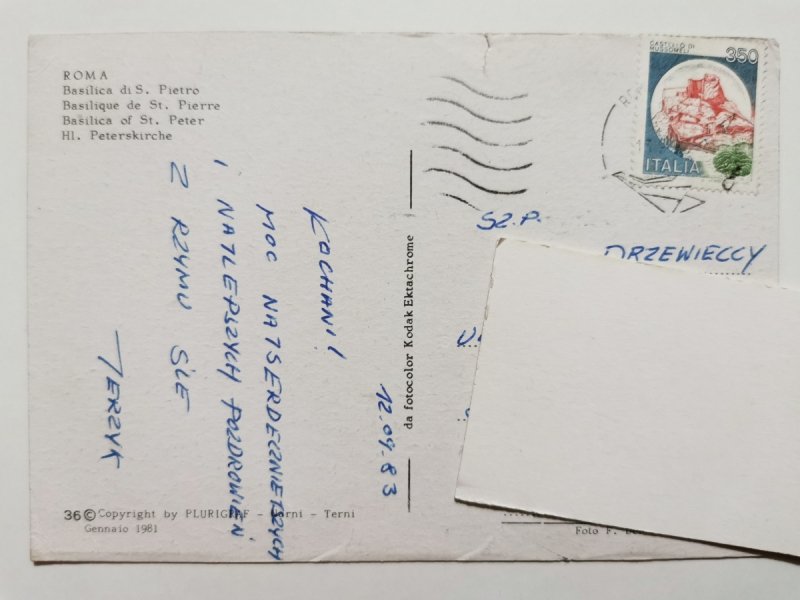 ROMA
Basilica di S. Pietro
Basilique de St. Pierre
Basilica of St. Peter
Hl. Peterskirche
KOCHANI!
MOC NAJSERDECZNIEJSZYCH
I NAJLEPSZYCH POZDROWIEŃ
Z RZYMU ŚLE
JERZYK
12.04.83
da fotocolor Kodak Ektachrome
CASTELLO DI
MUSSOMELI
350
ITALIA
SZ.P.
DRZEWIECCY
36 © Copyright by PLURIGRAF - Narni - Terni
Gennaio 1981
Foto F.